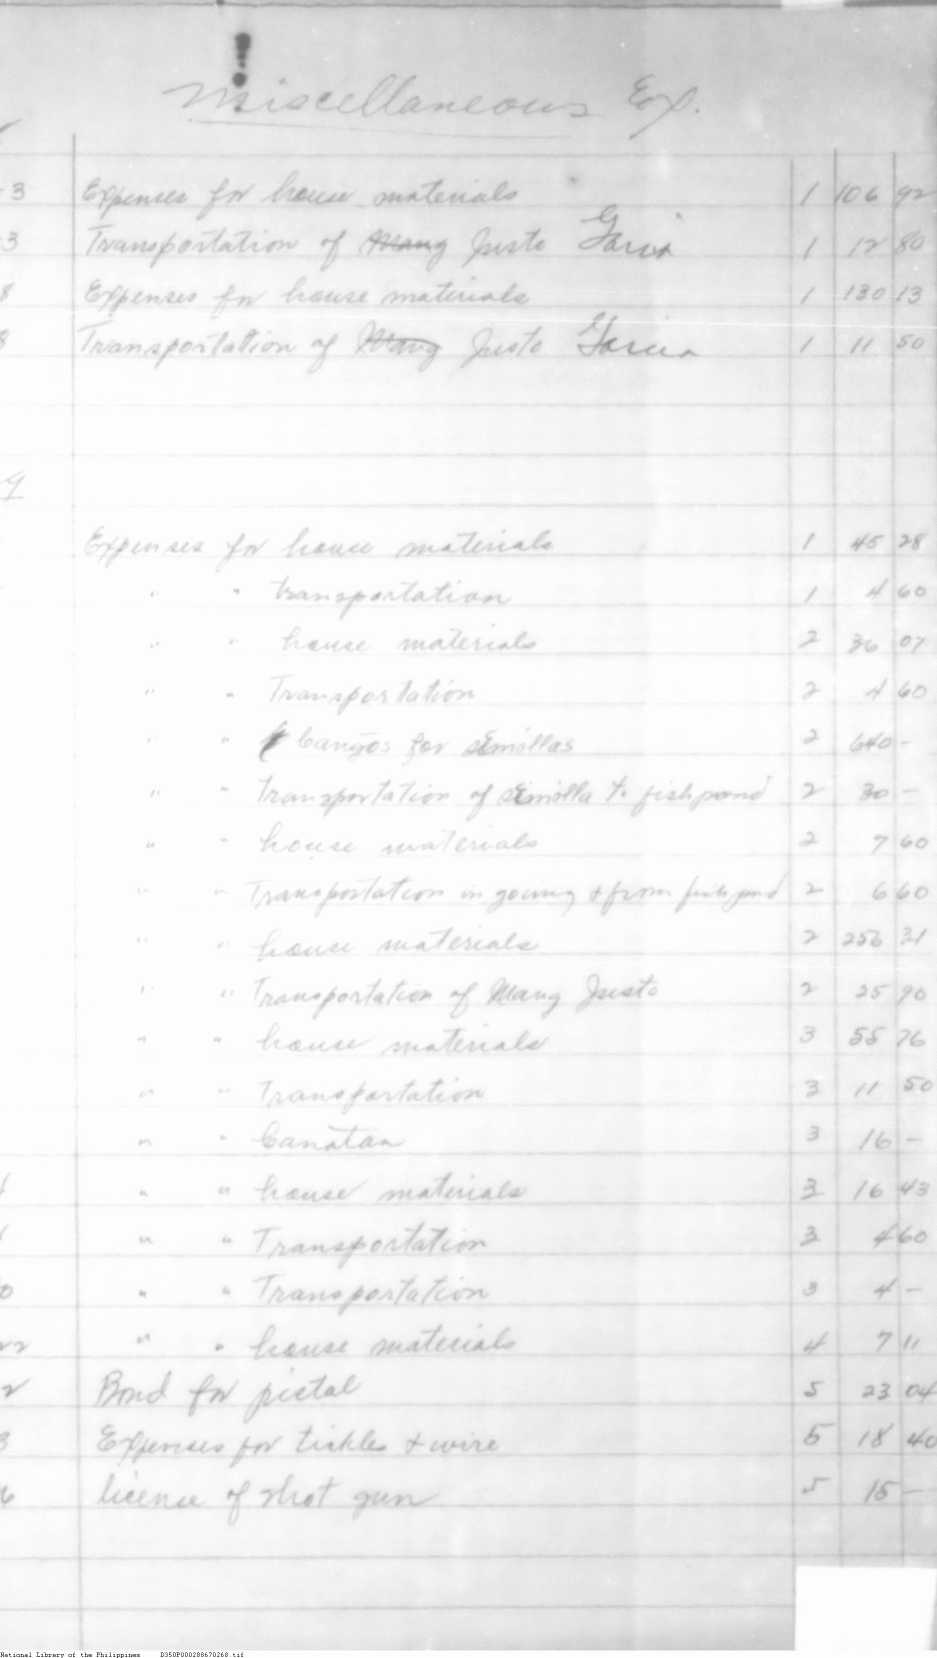 Miscellaneous Ex.
3 Expenses for house materials 1 106 92
3 Transportation of Mang Justo Garcia 1 12 80
8 Expenses for house materials 1 130 13
8 Transportation of Mang Justo Garcia 1 11 50
Expenses for house materials 1 45 28
" " transportation 1 4 60
" " house materials 2 36 07
" " Transportation 2 4 60
" " for semillas 2 640 -
" " transportation of semilla to fishpond 2 30 -
" " house materials 2 7 60
" " Transportation in going & from fishpond 2 6 60
" " house materials 2 256 31
" " Transportation of Mang Justo 2 25 90
" " house materials 3 55 76
" " Transportation 3 11 50
" " Canatan 3 16 -
" " house materials 3 16 43
" " Transportation 3 4 60
0 " " Transportation 3 4 -
22 " " house materials 4 7 11
2 Bond for pistal 5 23 04
3 Expenses for tickles & wire 5 18 40
6 license of shot gun 5 15 -
National Library of the Philippines D350P000288670268.tif